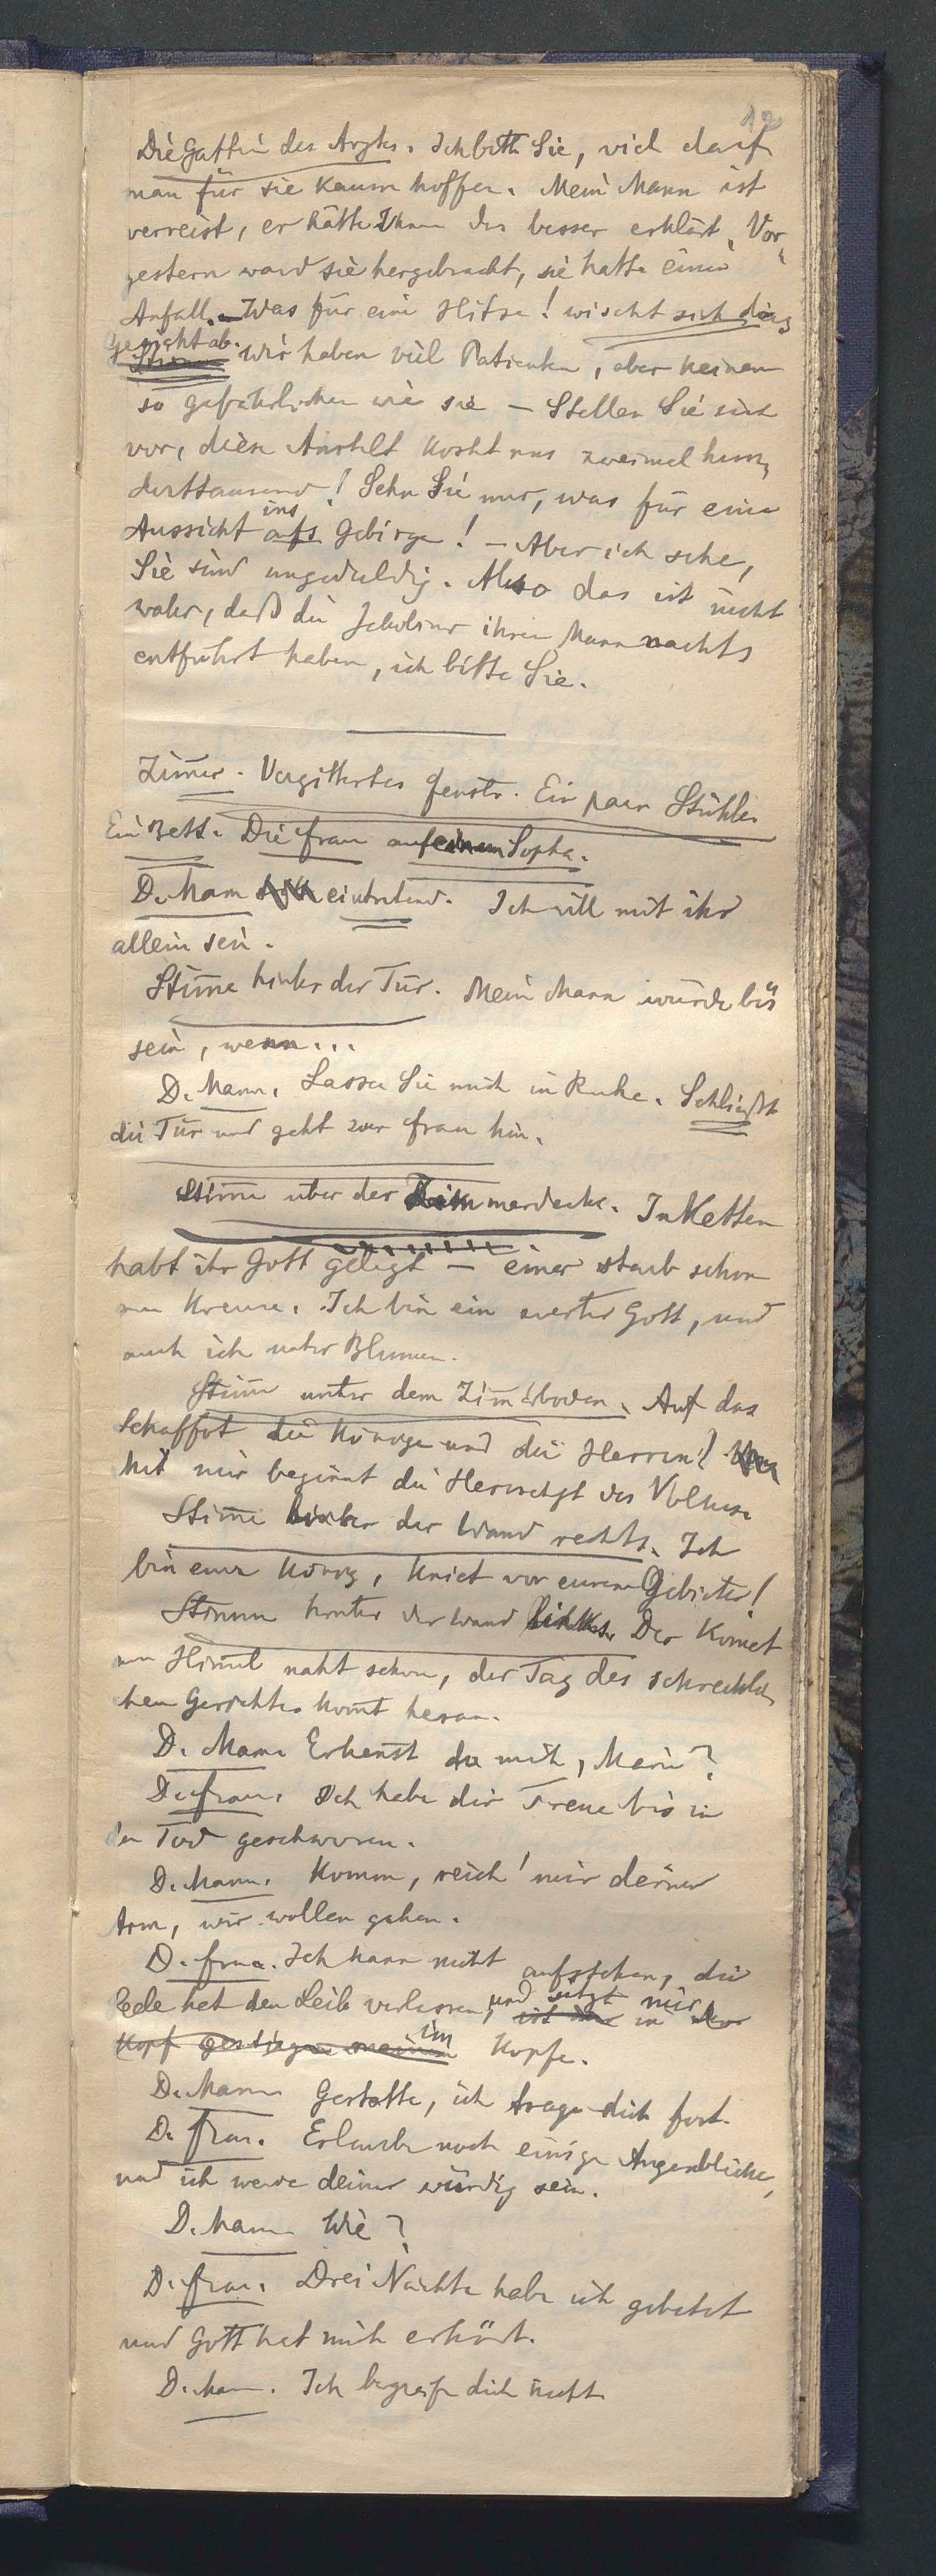 12
Die Gattin des Arztes. Ich bitte Sie, viel darf
man für sie kaum hoffen. Mein Mann ist
verreist, er hätte Ihnen das besser erklärt. Vor-
gestern ward sie hergebracht, sie hatte einen
Anfall. – Was für eine Hitze! wischt sich das
Gesicht ab.
Stirne Wir haben viel Patienten, aber keinen
so gefährlichen wie sie – Stellen Sie sich
vor, diese Anstalt kostet uns zweimal hun-
derttausend! Sehn Sie nur, was für eine
ins
Aussicht aufs Gebirge! – Aber ich sehe,
Sie sind ungeduldig. Also das ist nicht
wahr, daß die Jakobiner ihren Mann nachts
entführt haben, ich bitte Sie.
Zim̄er. Vergittertes Fenster. Ein paar Stühle.
Ein Bett. Die Frau auf einem Sopha.
D. Mann eintretend. Ich will mit ihr
allein sein.
Stim̄e hinter der Tür. Mein Mann würde bös
sein, wenn...
D. Mann. Lassen Sie mich in Ruhe. Schließt
die Tür und geht zur Frau hin.
Stim̄e über der Zimmerdecke. In Ketten
habt ihr Gott gelegt – einer starb schon
am Kreuze. Ich bin ein zweiter Gott, und
auch ich unter Blumen.
Stim̄e unter dem Zim̄erboden. Auf das
Schaffot die Könige und die Herren!
Mit mir beginnt die Herrschaft des Volkes.
Stim̄e hinter der Wand rechts. Ich
bin euer König, kniet vor eurem Gebieter!
Stimme hinter der Wand links. Der Komet
am Him̄el naht schon, der Tag des schreckli-
chen Gerichtes kom̄t heran.
D. Mann Erken̄st du mich, Marie?
D. Frau. Ich habe dir Treue bis in
den Tod geschworen.
D. Mann. Komm, reich' mir deinen
Arm, wir wollen gehen.
D. Frau. Ich kann nicht aufstehen, die
Seele hat den Leib verlassen, und sitzt mir
ist in der
Kopf gestiegen im Kopfe.
D. Mann Gestatte, ich trage dich fort.
D. Frau. Erlaube noch einige Augenblicke,
und ich werde deiner würdig sein.
D. Mann Wie?
D. Frau. Drei Nächte habe ich gebetet
und Gott hat mich erhört.
D. Mann. Ich begreife dich nicht